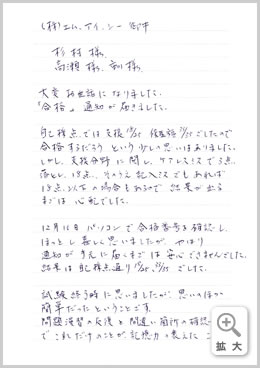 (株)エム.アイ.シー 御中
杉村様
高瀬様、
大変お世話になりました。
「合格」通知が届きました。
自己採点では支援 福祉 でしたので
合格するだろうという少しの思いはありました。
しかし、支援分野に関し、ケアレスミスで3点
落とし、18点、そのうえ記入ミスでもあれば
18点以下の場合もあるので結果が出る
までは心配でした。
12月12日 パソコンで合格番号を確認し
ほっとし喜しく思いましたが、やはり
通知が手元に届くまでは安心できませんでした。
結果は自己採点通り でした。
試験終了時に思いましたが、思いのほか
簡単だったということです。
問題演習の反復と間違い箇所の確認
でこれだけのことが記憶力の衰えた
拡大